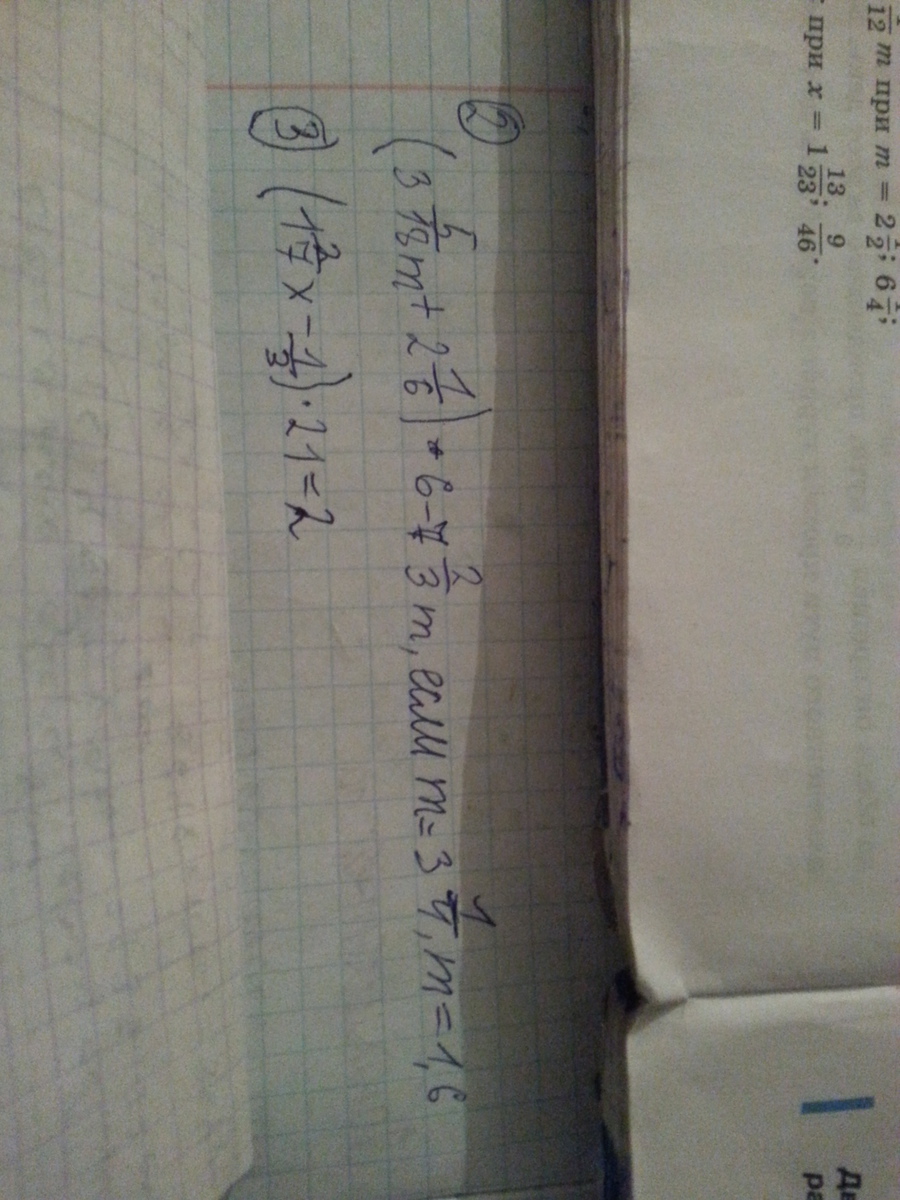 12 m при m = 2 1/2; 6 1/4;
при x = 1 13/23; 9/46.
② (3 5/18 m + 2 1/6) · 6 - 7 2/3 m, если m = 3 1/4, m = 1,6
③ (1 2/7 x - 1/3) · 21 = 2